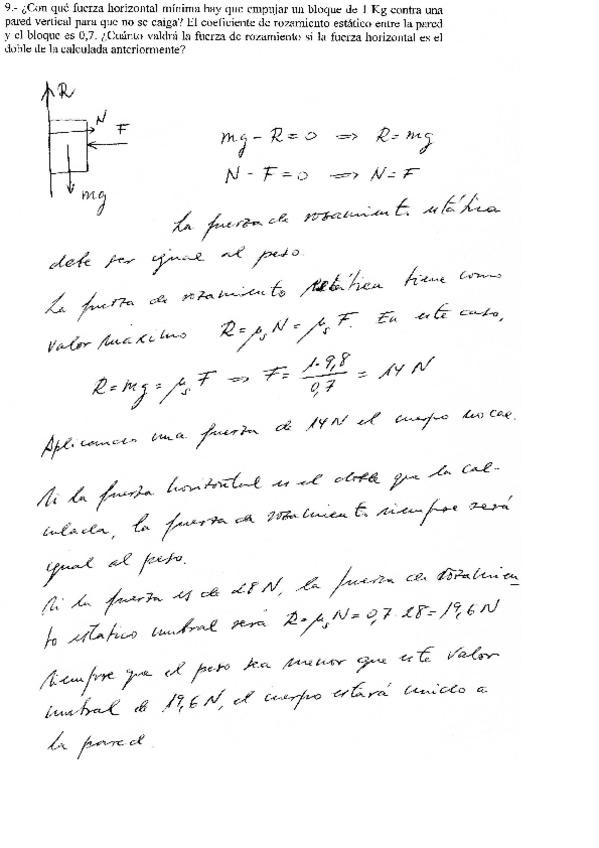 9.- ¿Con qué fuerza horizontal mínima hay que empujar un bloque de 1 Kg contra una
pared vertical para que no se caiga? El coeficiente de rozamiento estático entre la pared
y el bloque es 0,7. ¿Cuánto valdrá la fuerza de rozamiento si la fuerza horizontal es el
doble de la calculada anteriormente?
R
N
F
mg
mg - R = 0 ⇒ R = mg
N - F = 0 ⇒ N = F
La fuerza de rozamiento estática
debe ser igual al peso.
La fuerza de rozamiento estática tiene como
valor máximo R = μₛN = μₛF. En este caso,
R = mg = μₛF ⇒ F = 1·9,8 / 0,7 = 14 N
Aplicando una fuerza de 14 N el cuerpo no cae.
Si la fuerza horizontal es el doble que la cal-
culada, la fuerza de rozamiento siempre será
igual al peso.
Si la fuerza es de 28 N, la fuerza de rozamien
to estático umbral será R = μₛN = 0,7·28 = 19,6 N
Siempre que el peso sea menor que este valor
umbral de 19,6 N, el cuerpo estará unido a
la pared.